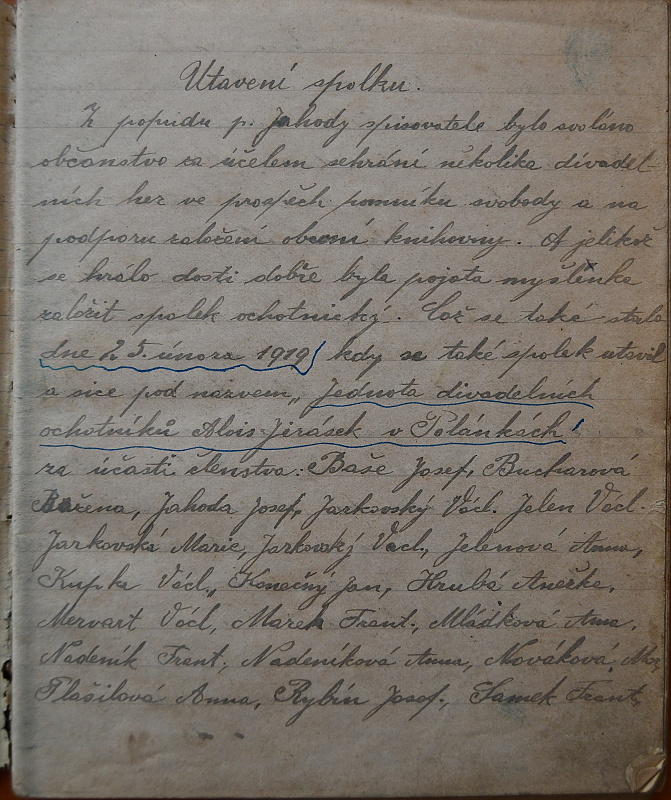 Utavení spolku.
Z popudu p. Jahody spisovatele bylo svoláno
občanstvo za účelem sehrání několika divadel-
ních her ve prospěch pomníku svobody a na
podporu založení obecní knihovny. A jelikož
se hrálo dosti dobře byla pojata myšlenka
založit spolek ochotnický. Což se také stalo
dne 25. února 1919 kdy se také spolek utavil
a sice pod názvem „Jednota divadelních
ochotníků Alois Jirásek v Polánkách"
za účasti členstva: Baše Josef, Bucharová
Božena, Jahoda Josef, Jarkovský Václ. Jelen Václ.
Jarkovská Marie, Jarkovský Vacl., Jelenová Anna,
Kupka Václ., Konečný Jan, Hrubá Anežke,
Mervart Václ, Marek Frant., Mládková Anna,
Nadeník Frant, Nadeníková Anna, Nováková, Mar
Plašilová Anna, Rybín Josef., Samek Frant,